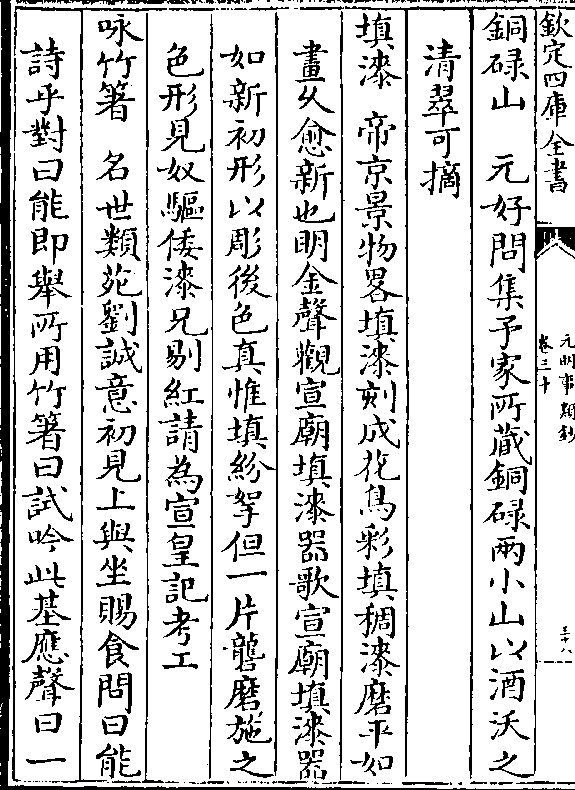 欽定四庫全書
元明事類鈔
卷三十
三十八
銅碌山　元好問集予家所蔵銅碌兩小山以酒沃之
清翠可摘
填漆　帝京景物畧填漆刻成花鳥彩填稠漆磨平如
畫久愈新也明金聲觀宣廟填漆器歌宣廟填漆器
如新初形以彫後色真惟填紛挐但一片礲磨施之
色形見奴驅倭漆兄剔紅請為宣皇記考工
咏竹箸　名世類苑劉誠意初見上與坐賜食問曰能
詩乎對曰能即舉所用竹箸曰試吟此基應聲曰一